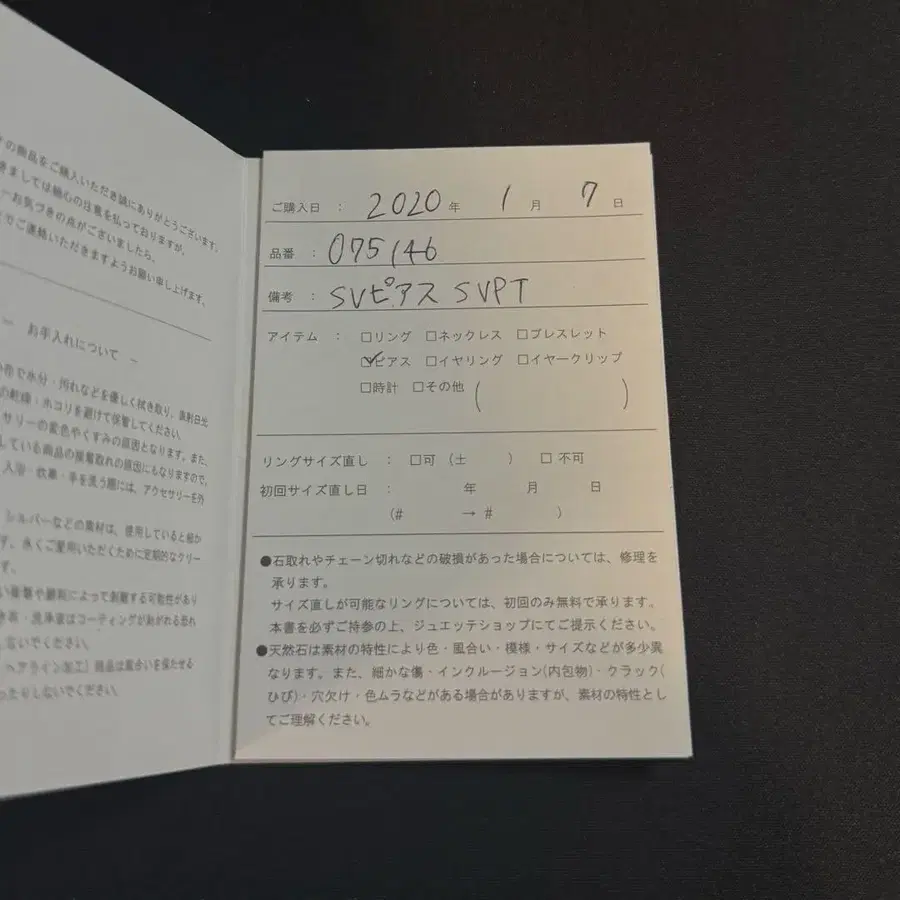 の商品をご購入いただき誠にありがとうございます。
きましては細心の注意を払っておりますが、
一お気づきの点がございましたら、
でご連絡いただきますようお願い申し上げます。
― お手入れについて ―
布で水分・汚れなどを優しく拭き取り、直射日光
の乾燥・ホコリを避けて保管してください。
サリーの変色やくすみの原因となります。また、
している商品の接着取れの原因にもなりますので、
入浴・炊事・手を洗う際には、アクセサリーを外
シルバーなどの素材は、使用していると細か
す。永くご愛用いただくために定期的なクリー
す。
い衝撃や摩耗によって剥離する可能性があり
・洗浄液はコーティングが剥がれる恐れ
ないでください。
ヘアライン加工］商品は風合いを保たせる
ったりしないでください。
ご購入日 ： 2020 年 1 月 7 日
品番 ： 075146
備考 ： SVピアス SVPT
アイテム ： □リング □ネックレス □ブレスレット
☑ピアス □イヤリング □イヤークリップ
□時計 □その他 (　　　)
リングサイズ直し ： □可 (±　　) □ 不可
初回サイズ直し日 ： 年 月 日
(#　　→ #　　)
●石取れやチェーン切れなどの破損があった場合については、修理を
承ります。
サイズ直しが可能なリングについては、初回のみ無料で承ります。
本書を必ずご持参の上、ジュエッテショップにてご提示ください。
●天然石は素材の特性により色・風合い・模様・サイズなどが多少異
なります。また、細かな傷・インクルージョン(内包物)・クラック(
ひび)・穴欠け・色ムラなどがある場合がありますが、素材の特性とし
てご理解ください。